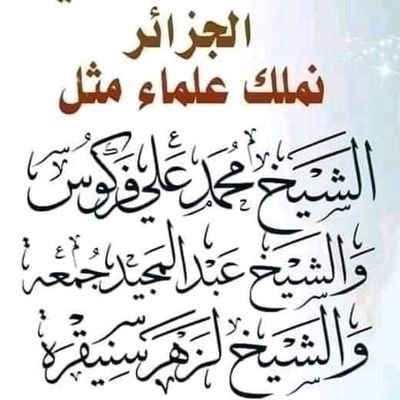 الجزائر
نملك علماء مثل
الشيخ محمد علي فركوس
والشيخ عبد المجيد جمعة
والشيخ لزهر سنيقرة